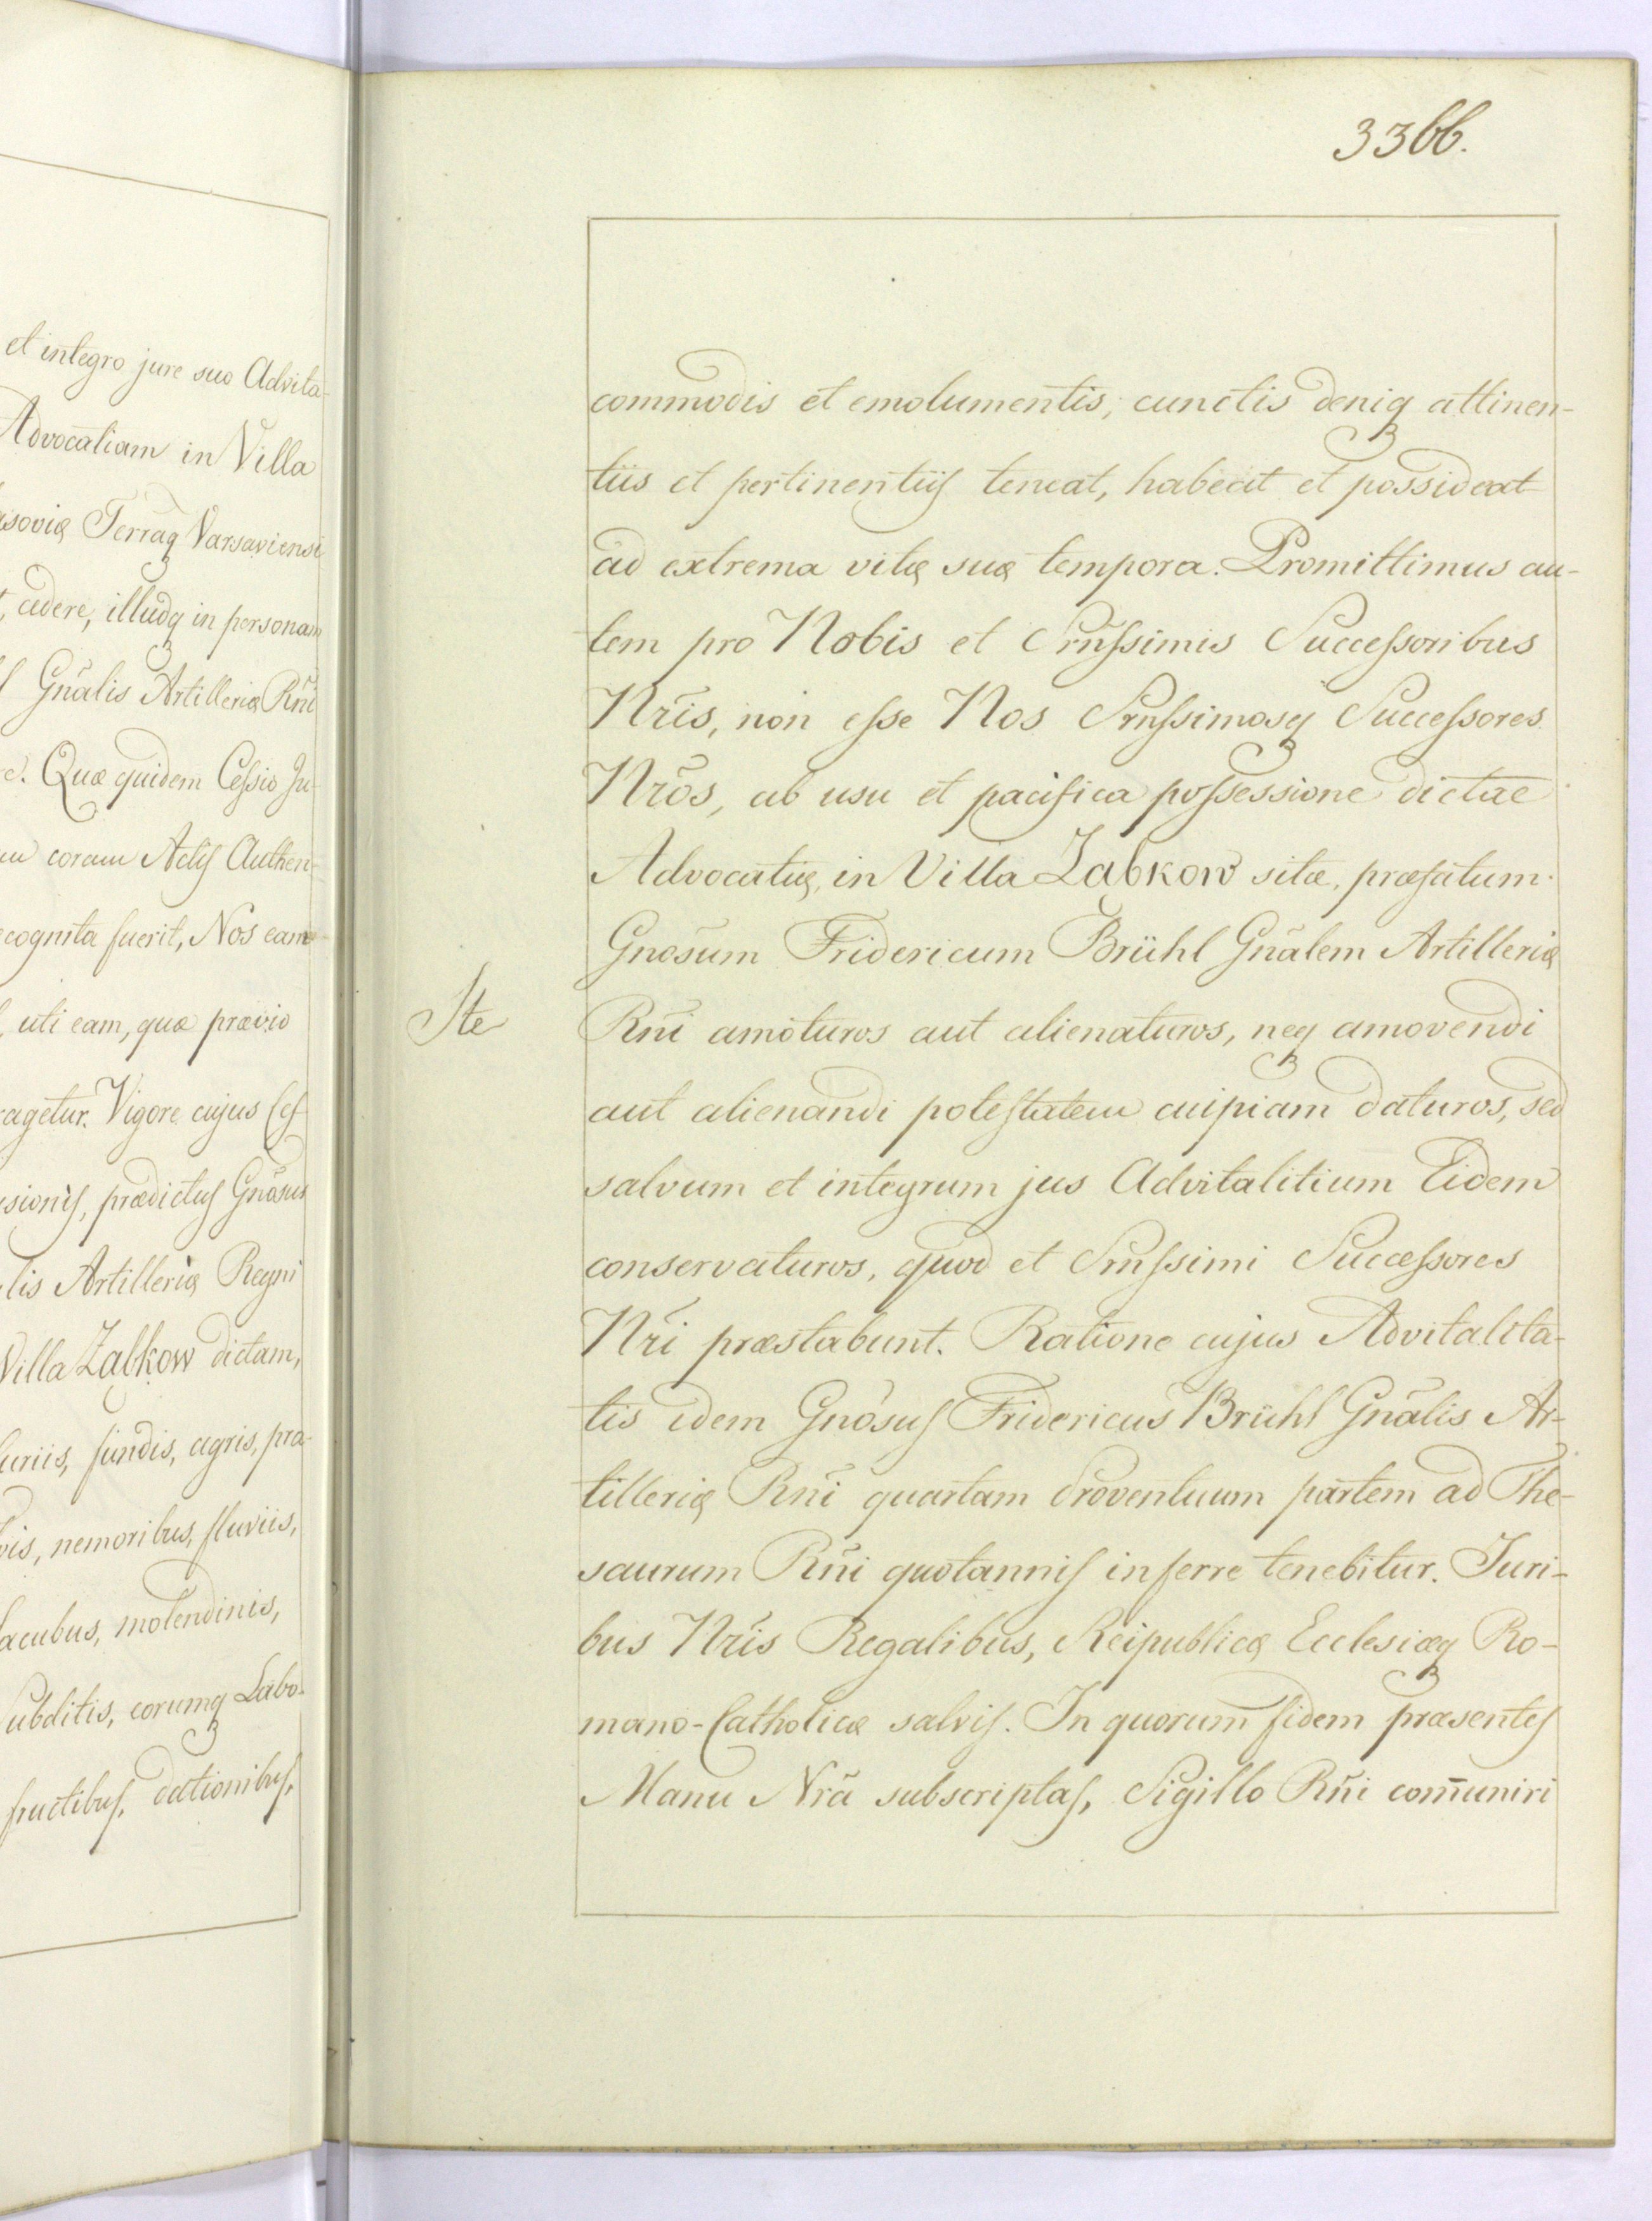 et integro jure suo Advita-
Advocatiam in Villa
Terraq Varsaviensi
cedere, illudq in personam
Gnalis Artilleriæ Rni
Quæ quidem Cessio Ju-
coram Actis Authen-
cognita fuerit, Nos eam-
uti eam, quæ prævio
Vigore cujus Ces-
prædictus Gnosus
lis Artilleriæ Regni
Villa Ząbkow dictam,
fundis, agris, pra-
nemoribus, fluviis,
lacubus, molendinis,
Subditis, eorumq Labo-
dationibus,
3366.
commodis et emolumentis, cunctis deniq attinen-
tiis et pertinentiis teneat, habeat et possideat
ad extrema vitæ suæ tempora. Promittimus au-
tem pro Nobis et Srnssimis Successoribus
Nris, non esse Nos Srnssimosq Successores
Nros, ab usu et pacifica possessione dictae
Advocatiæ, in Villa Ząbkow sitæ, præfatum
Gnosum Fridericum Brühl Gnalem Artilleriæ
Ste
Rni amoturos aut alienaturos, neq amovendi
aut alienandi potestatem cuipiam daturos, sed
salvum et integrum jus Advitalitium Eidem
conservaturos, quod et Srnssimi Successores
Nri præstabunt. Ratione cujus Advitalita-
tis idem Gnosus Fridericus Brühl Gnalis Ar-
tilleriæ Rni quartam Proventuum partem ad The-
saurum Rni quotannis inferre tenebitur. Juri-
bus Nris Regalibus, Reipublicæ Ecclesiæq Ro-
mano-Catholicæ salvis. In quorum fidem præsentes
Manu Nra subscriptas, Sigillo Rni com̄uniri